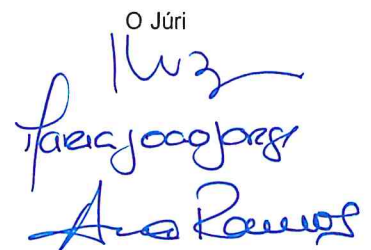 O Júri
Maria João Jorge
Ana Ramos